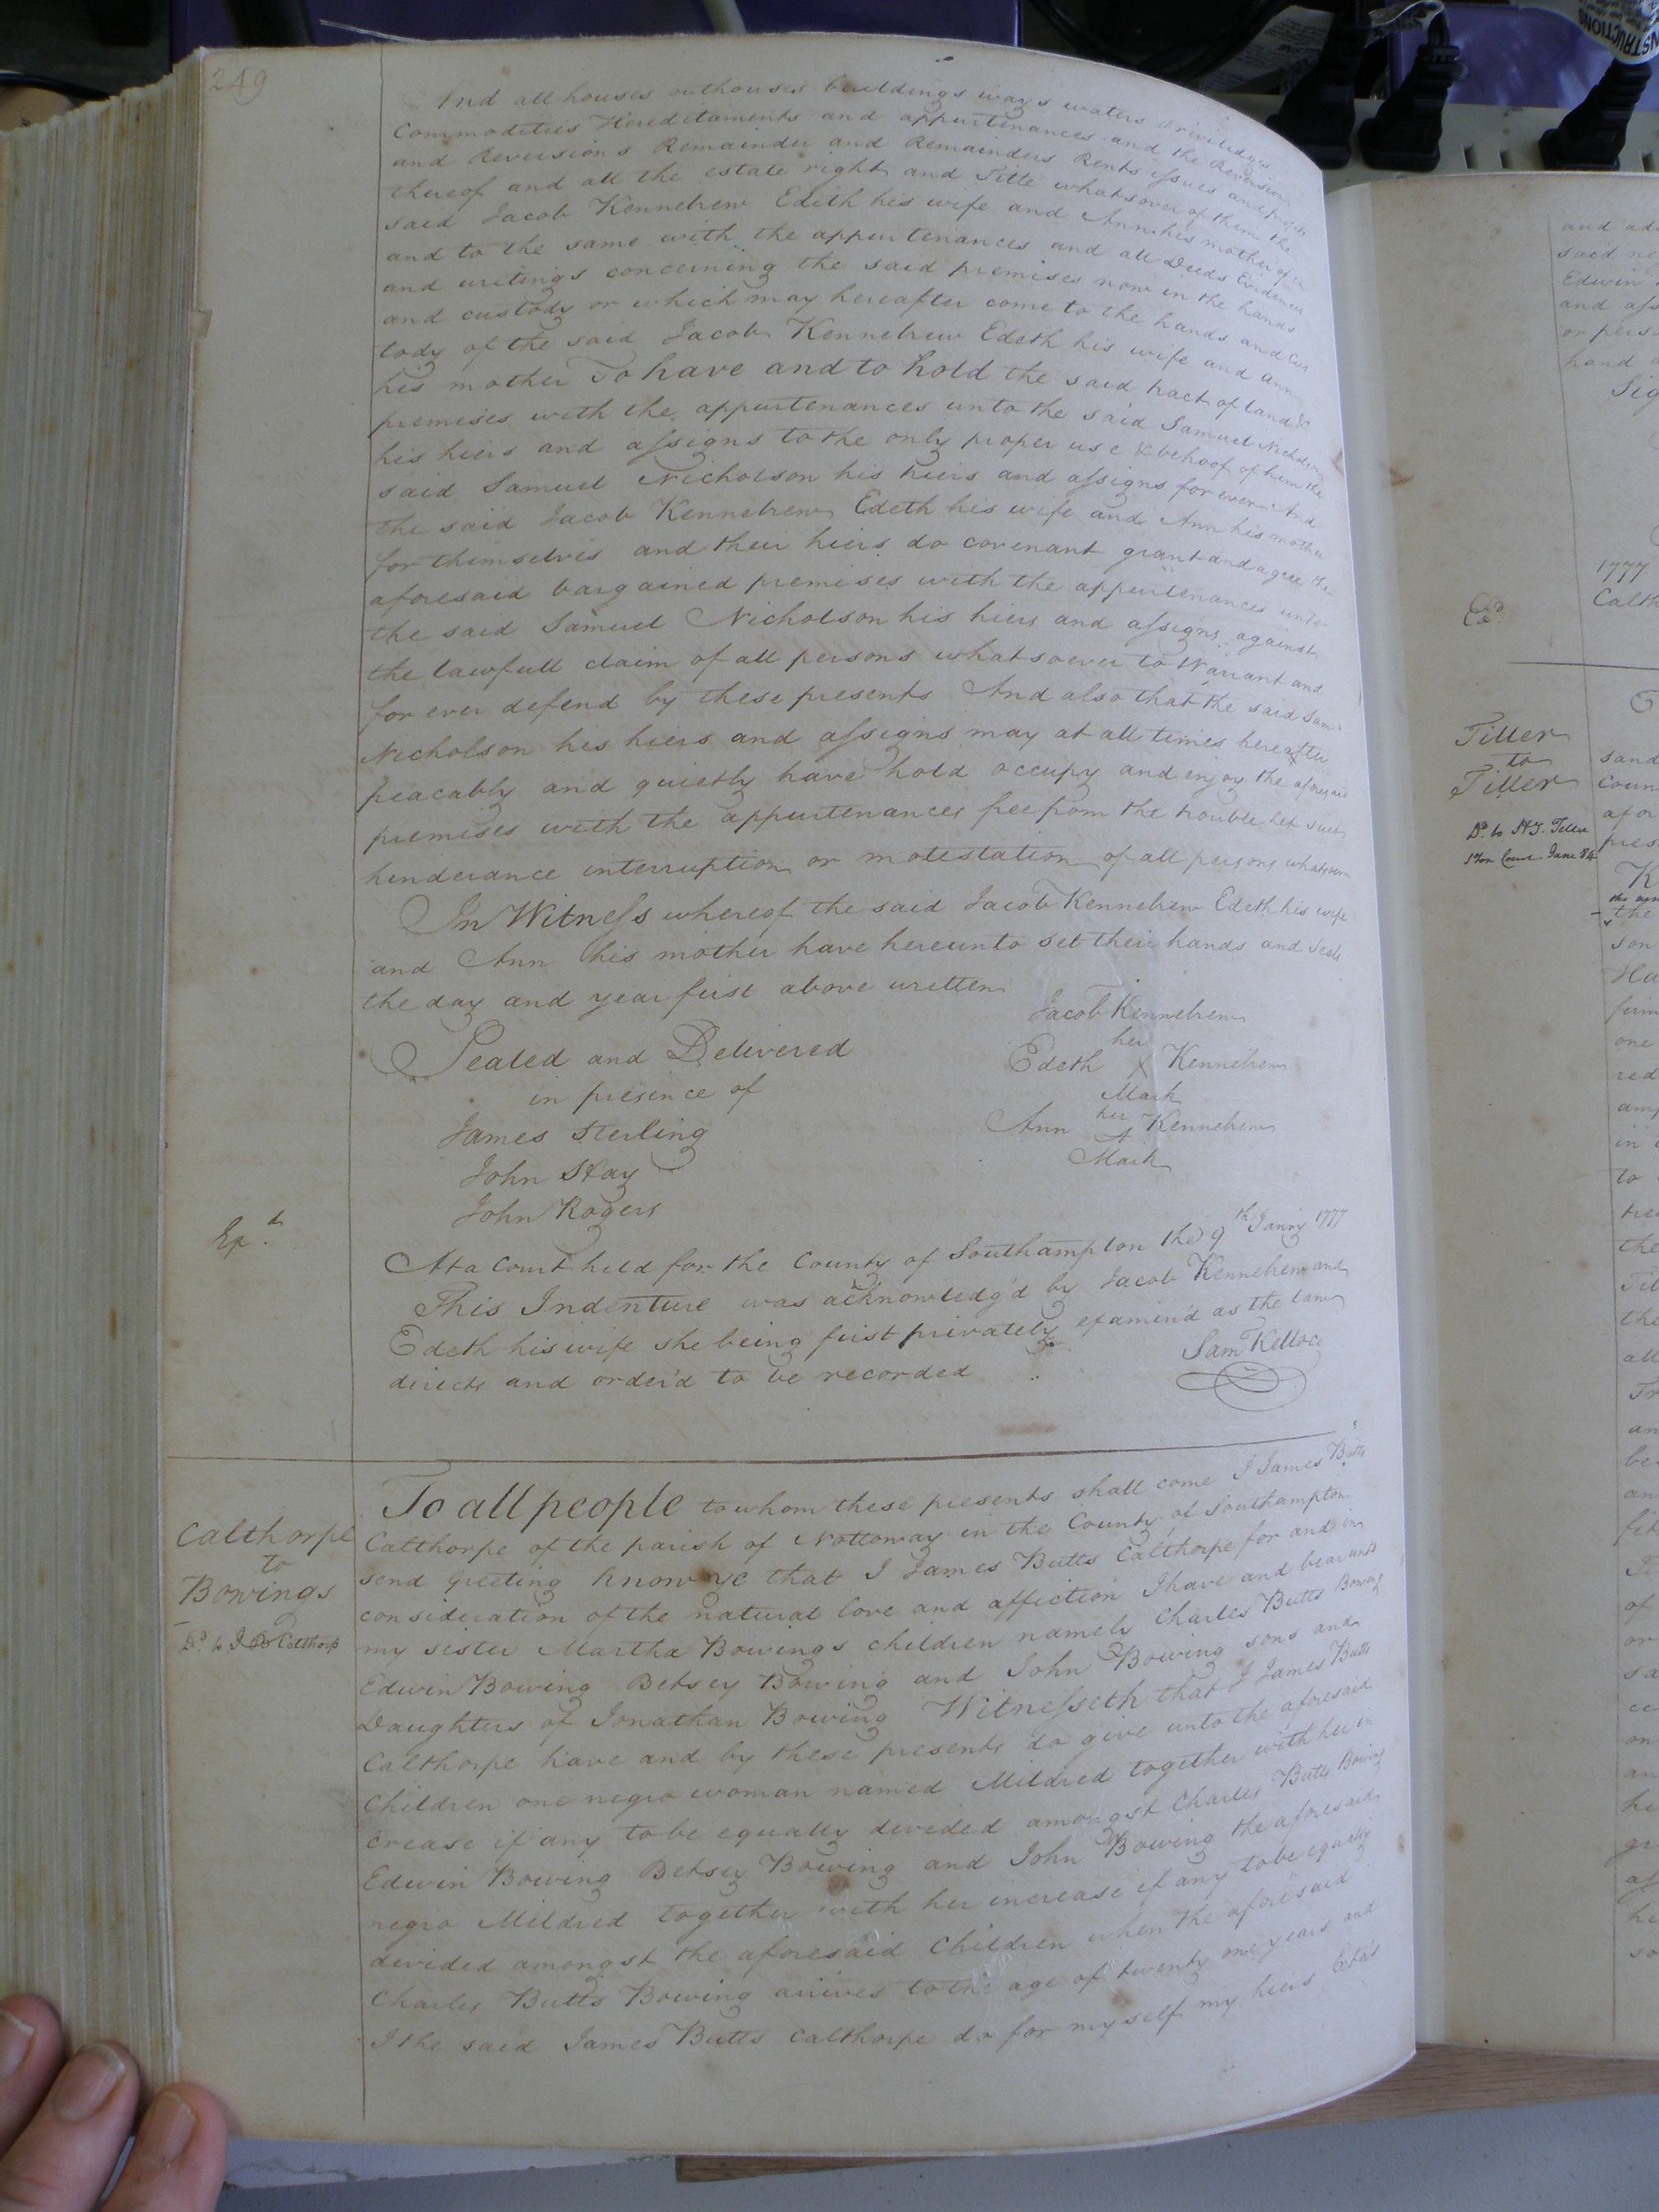 249
And all houses outhouses buildings ways waters priviledges
Commodities Hereditaments and appurtenances and the Reversion
and Reversions Remainder and Remainders Rents issues and profits
thereof and all the estate right and Title whatsover of them the
said Jacob Kennebrew Edith his wife and Ann his mother of in
and to the same with the appurtenances and all Deeds Evidences
and writings concerning the said premises now in the hands
and custody or which may hereafter come to the hands and Cus
tody of the said Jacob Kennebrew Edeth his wife and ann
his mother To have and to hold the said tract of land &
premises with the appurtenances unto the said Samuel Nicholson
his hiers and assigns to the only proper use & behoof of him the
said Samuel Nicholson his hiers and assigns for ever And
the said Jacob Kennebrew Edeth his wife and Ann his mother
for themselves and their hiers do covenant grant and agree the
aforesaid bargained premises with the appurtenances unto
the said Samuel Nicholson his hiers and assigns against
the lawfull claim of all persons whatsoever to Warrant and
for ever defend by these presents And also that the said Sam
Nicholson his hiers and assigns may at all times hereafter
peacably and quietly have hold occupy and enjoy the aforesaid
premises with the appurtenances free from the trouble let suit
hinderance interruption or molestation of all persons whatsoever
In Witness whereof the said Jacob Kennebrew Edeth his wife
and Ann his mother have hereunto set their hands and Seals
the day and year first above written
Jacob Kennebrew
Sealed and Delivered
her
Edeth X Kennebrew
Mark
in presence of
her
Ann Kennebrew
Mark
James Sterling
John Kay
John Rogers
Exd
At a Court held for the County of Southampton the 9th Janry 1777
This Indenture was acknowledg'd by Jacob Kennebrew and
Edeth his wife she being first privately examin'd as the law
directs and order'd to be recorded
Sam Kello CC
Calthorpe
to
Bowings
Dd to J B Calthorp
To all people to whom these presents shall come I James Butts
Calthorpe of the parish of Nottoway in the County of Southampton
send Greeting Know ye that I James Butts Calthorpe for and in
consideration of the natural love and affection I have and bear unto
my sister Martha Bowings children namely Charles Butts Bowing
Edwin Bowing Betsey Bowing and John Bowing sons and
Daughters of Jonathan Bowing Witnesseth that I James Butts
Calthorpe have and by these presents do give unto the aforesaid
Children one negro woman named Mildred together with her in
crease if any to be equally devided amongst Charles Butts Bowing
Edwin Bowing Betsey Bowing and John Bowing the aforesaid
negro Mildred together with her increase if any to be equally
devided amongst the aforesaid Children when the aforesaid
Charles Butts Bowing arrives to the age of twenty one years and
I the said James Butts Calthorpe do for myself my hiers
and
said
Edwin
and
or
hand
1777
Exd
Tiller
to
Tiller
Dd to
the
son
one
in
to
the
the
all
of
or
on